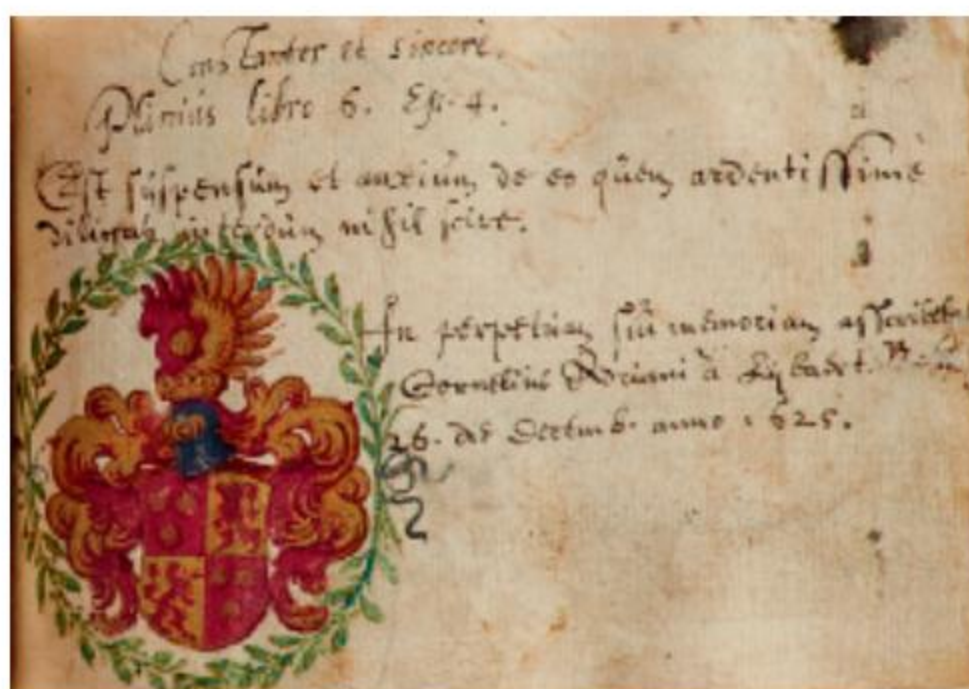 Constanter et sincere.
Plinius libro 6. Ep. 4.
Est suspensum et anxium de eo quem ardentissime
diligas interdum nihil scire.
In perpetuam sui memoriam asscribeb.
Cornelius Adriani à
26. die Decemb. anno 1625.